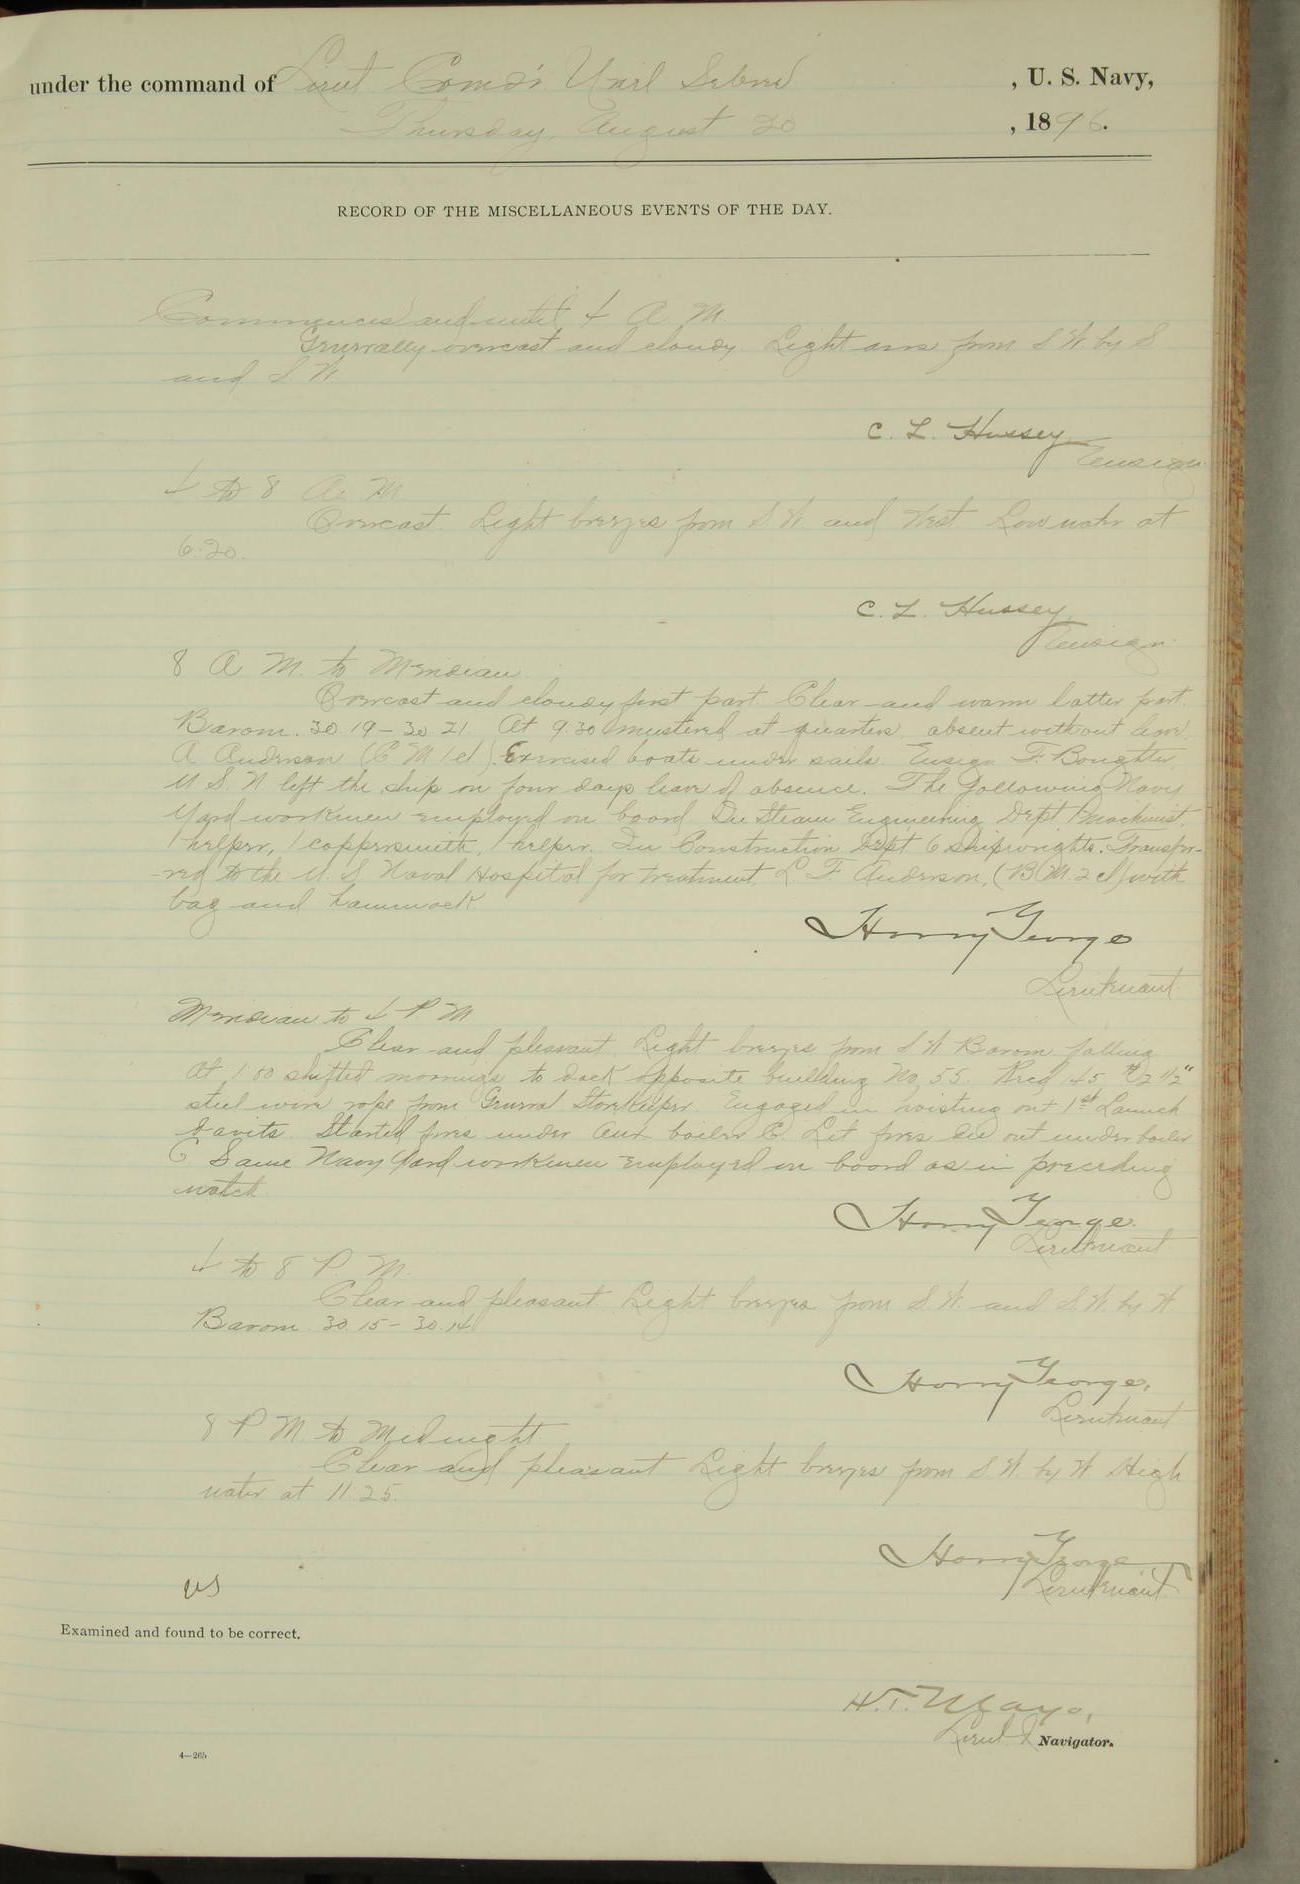 under the command of Lieut Comd'r Uriel Sebree , U. S. Navy,
Thursday, August 20 , 1896.
RECORD OF THE MISCELLANEOUS EVENTS OF THE DAY.
Commences and until 4 A. M.
Generally overcast and cloudy. Light airs from S W. by S
and S. W.
C. L. Hussey
Ensign
4 to 8 A. M
Overcast. Light breezes from S. W. and West. Low water at
6:20.
C. L. Hussey,
Ensign
8 A. M. to Meridian
Overcast and cloudy first part. Clear and warm latter part.
Barom. 30.19 - 30.21. At 9.30 mustered at quarters, absent without leave,
A Anderson (C M 1 cl). Exercised boats under sails. Ensign F. Boughter,
U. S. N left the ship on four days leave of absence. The following Navy
Yard workmen employed on board. In Steam Engineering Dept 1 machinist,
1 helper, 1 coppersmith, 1 helper. In Construction Dept 6 shipwrights. Transfer-
-red to the U. S Naval Hospital for treatment, L F. Anderson, (B. M. 2 cl) with
bag and hammock
Harry George
Lieutenant
Meridian to 4 P. M
Clear and pleasant. Light breezes from S W Barom falling
At 1:00 shifted moorings to dock opposite building No, 55. Recd 145 2 1/2"
steel wire rope from General Storekeeper. Engaged in hoisting out 1st Launch
davits. Started fires under Aux boiler C. Let fires die out under boiler
G Same Navy Yard workmen employed on board as in preceding
watch.
Harry George.
Lieutenant
4 to 8 P. M.
Clear and pleasant. Light breezes from S. W. and S. W. by W.
Barom. 30.15 - 30.14
Harry George,
Lieutenant
8 P M. to Midnight
Clear and pleasant Light breezes from S. W. by W. High
water at 11.25.
Harry George
Lieutenant
US
Examined and found to be correct.
H. T. Mayo,
Lieut & Navigator.
4—265